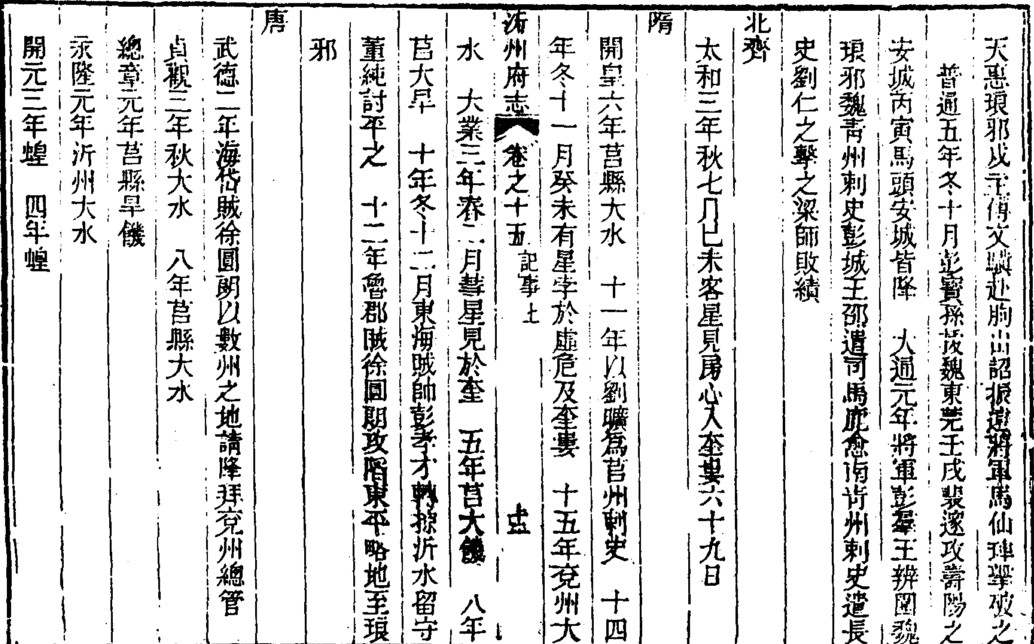 天惠琅邪戍主傅文驥赴朐山詔振遠將軍馬仙琕擊破之
普通五年冬十月彭寶孫拔魏東莞王戌裴邃攻壽陽之
安城丙寅馬頭安城皆降　大通元年將軍彭羣王辨圍魏
琅邪魏靑州刺史彭城王邵遣司馬鹿悆南靑州刺史遣長
史劉仁之擊之梁師敗績
北齊
太和三年秋七月巳未客星見房心入奎婁六十九日
隋
開皇六年莒縣大水　十一年以劉曠爲莒州刺史　十四
年冬十一月癸未有星孛於虛危及奎婁　十五年兗州大
沂州府志　卷之十五　記事上
水　大業三年春二月彗星見於奎　五年莒大饑　八年
莒大旱　十年冬十二月東海賊帥彭孝才轉掠沂水留守
董純討平之　十二年魯郡賊徐圓朗攻陷東平略地至琅
邪
唐
武德二年海岱賊徐圓朗以數州之地請降拜兗州總管
貞觀三年秋大水　八年莒縣大水
總章元年莒縣旱饑
永隆元年沂州大水
開元三年蝗　四年蝗